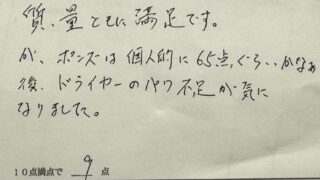 質、量ともに満足です。
が、ポンズは個人的に65点ぐらいかなぁ
後、ドライヤーのパワ不足が気に
なりました。
10点満点で 9 点